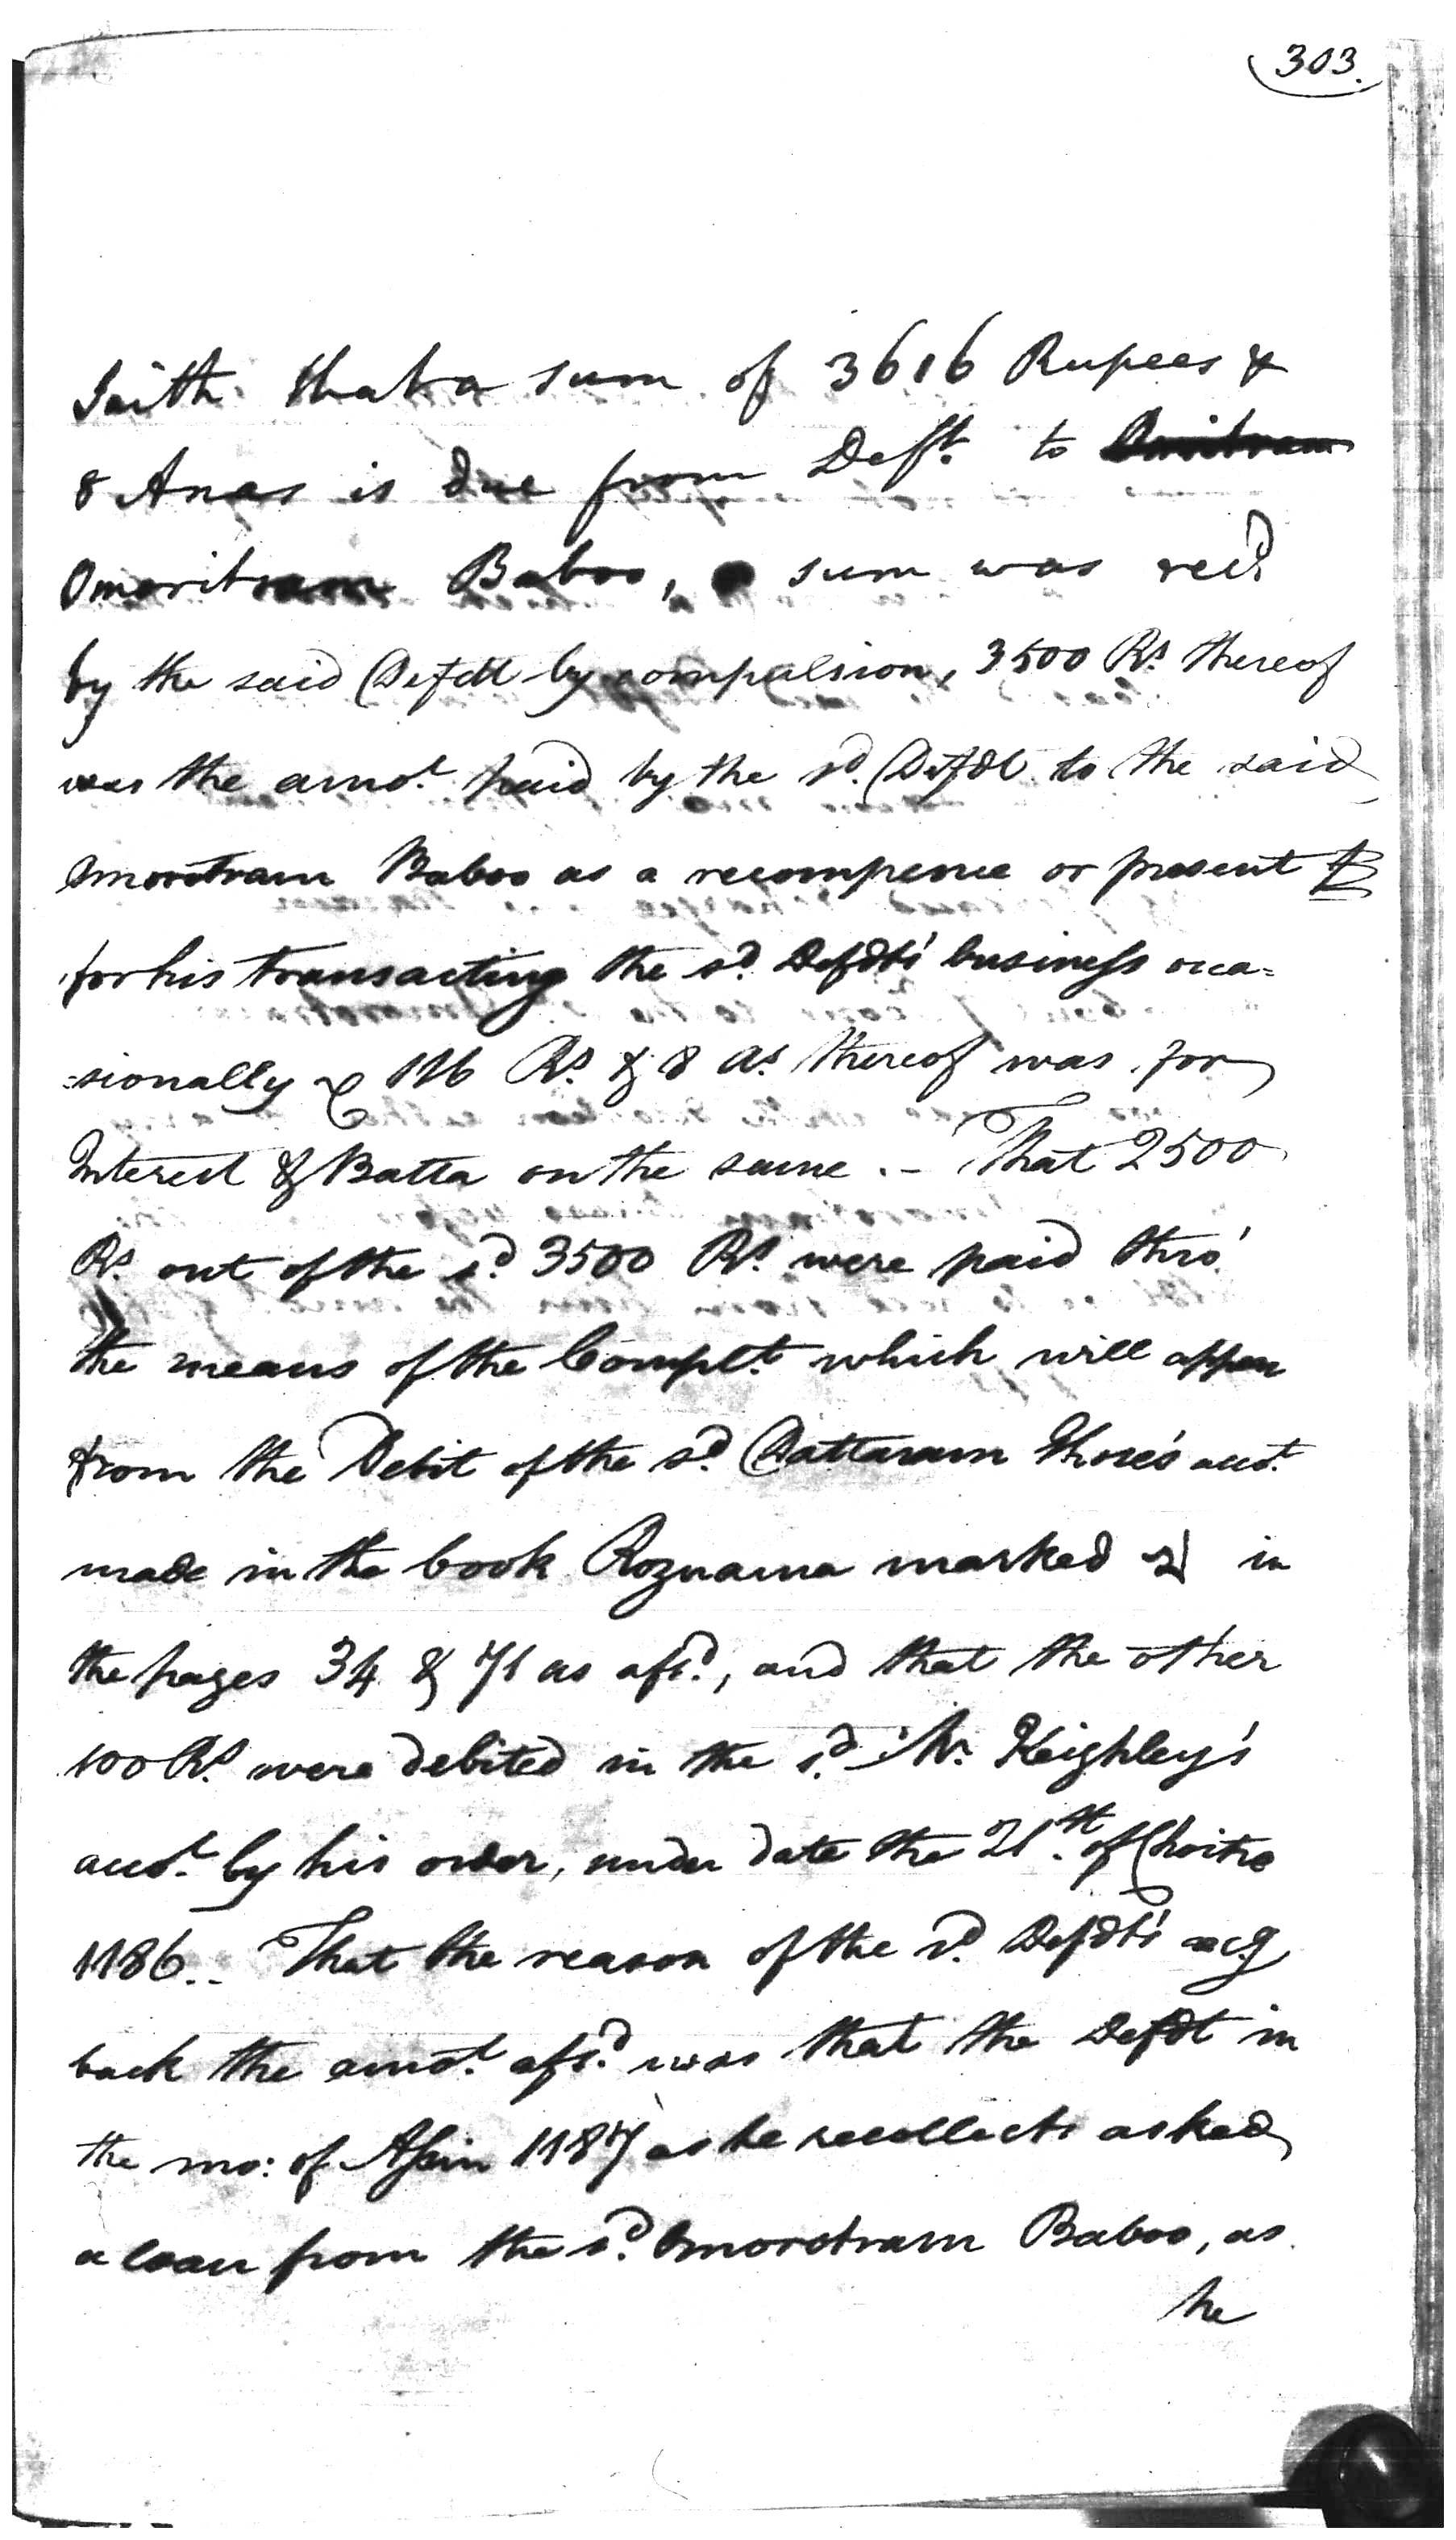 303.
Saith that a sum of 3616 Rupees &
8 Anas is due from Deft. to
Omoritram Baboo, sum was recd
by the said Defdt by compulsion, 3500 Rs. thereof
was the amot. paid by the sd. Defdt to the said
Omorotram Baboo as a recompence or present
for his transacting the sd. Defdts' business occa=
=sionally & 116 Rs. & 8 As. thereof was for
Interest & Batta on the same. - That 2500
Rs. out of the sd. 3500 Rs. were paid thro'
the means of the Complt. which will appear
from the Debit of the sd. Dattaram Ghose's accot.
made in the book Roznama marked in
the pages 34 & 71 as afsd., and that the other
100 Rs. were debited in the sd. Mr. Keighley's
accot. by his order, under date the 21th. of Choitro
1186.. That the reason of the sd. Defdts' recg
back the amot. afsd. was that the Defdt in
the mo: of Assin 1187 as he recollects asked
a loan from the sd. Omorotram Baboo, as
he